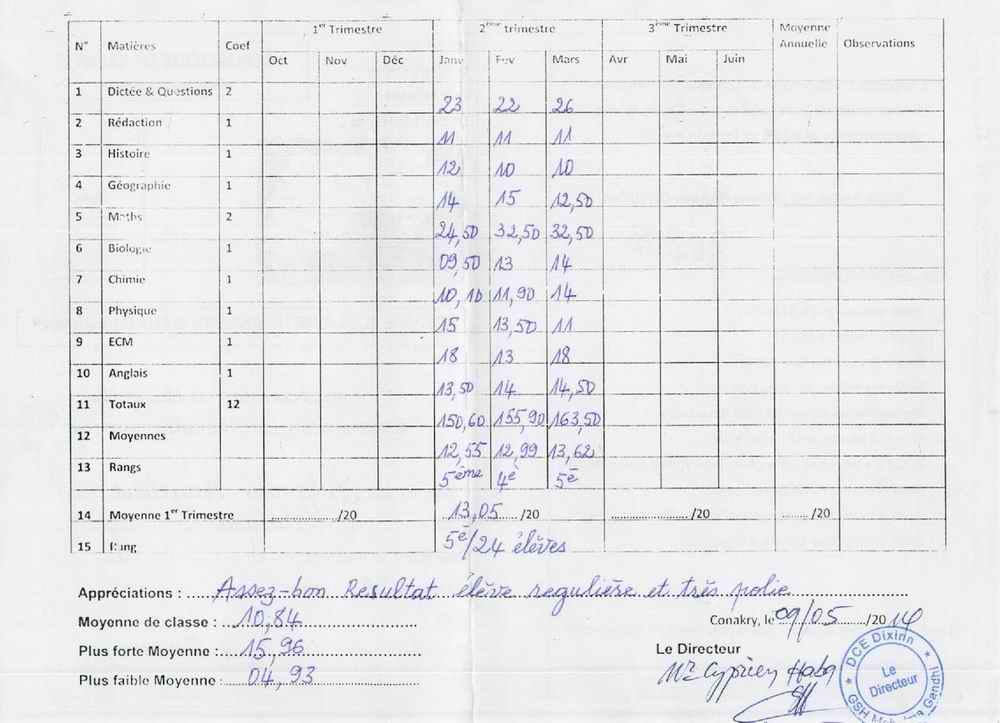 N° Matières Coef 1er Trimestre 2ème trimestre 3ème Trimestre Moyenne Annuelle Observations
Oct Nov Déc Janv Fev Mars Avr Mai Juin
1 Dictée & Questions 2 23 22 26
2 Rédaction 1 11 11 11
3 Histoire 1 12 10 10
4 Géographie 1 14 15 12,50
5 Maths 2 24,50 32,50 32,50
6 Biologie 1 09,50 13 14
7 Chimie 1 10,10 11,90 14
8 Physique 1 15 13,50 11
9 ECM 1 18 13 18
10 Anglais 1 13,50 14 14,50
11 Totaux 12 150,60 155,90 163,50
12 Moyennes 12,55 12,99 13,62
13 Rangs 5ème 4è 5è
14 Moyenne 1er Trimestre ............/20 13,05 /20 ............/20 ......../20
15 Rang 5è/24 élèves
Appréciations : Assez-bon Resultat élève regulière et très polie
Moyenne de classe : 10,84
Conakry, le 09/05/2014
Plus forte Moyenne : 15,96
Le Directeur
Plus faible Moyenne : 04,93
Mr Cyprien Haba
DCE Dixinn
Le Directeur
GSH Gandhi